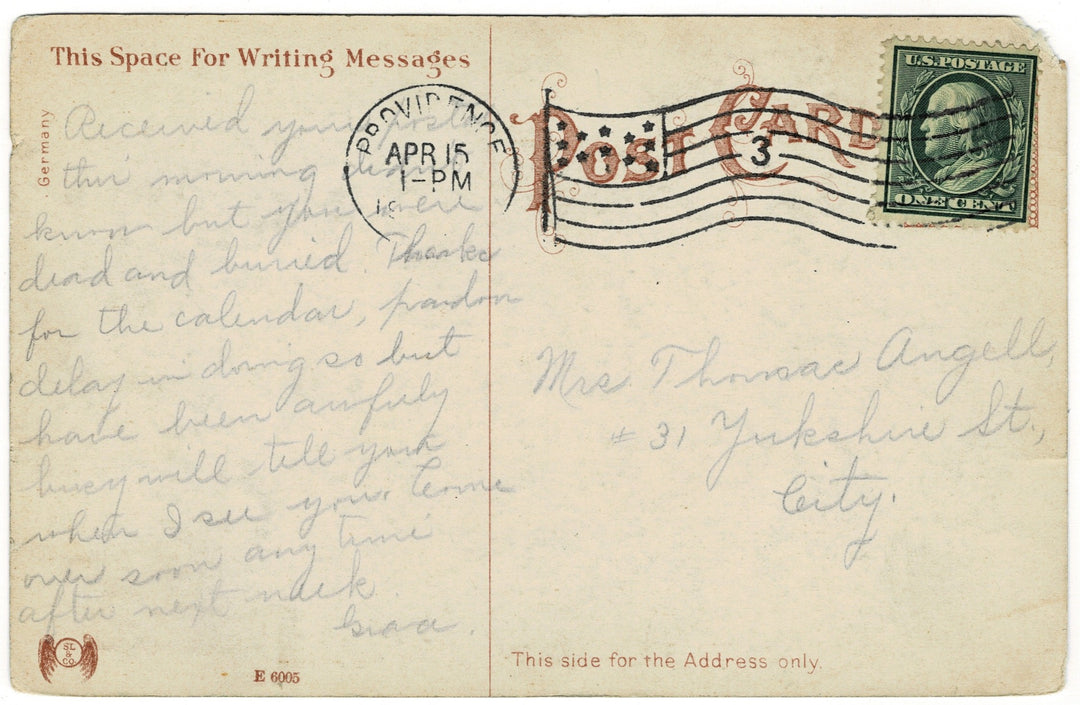 This Space For Writing Messages
Germany
Received your postal
this morning didn't
know but you were
dead and buried. Thanks
for the calendar, pardon
delay in doing so but
have been awfully
busy will tell you
when I see you. Come
over soon any time
after next week.
SL
&
Co
E 6005
POST CARD
PROVIDENCE
APR 15
1-PM
19
3
U.S. POSTAGE
ONE CENT
Mrs. Thomas Angell,
# 31 Yorkshire St.,
City.
This side for the Address only.